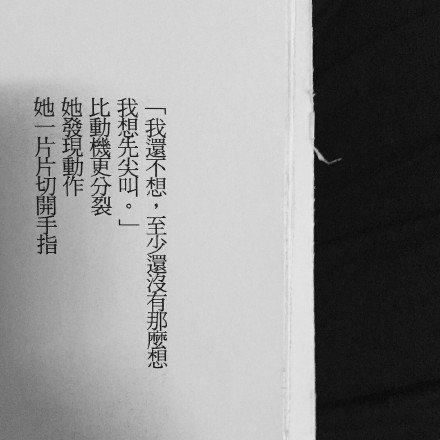 「我還不想，至少還沒有那麼想
我想先尖叫。」
比動機更分裂
她發現動作
她一片片切開手指